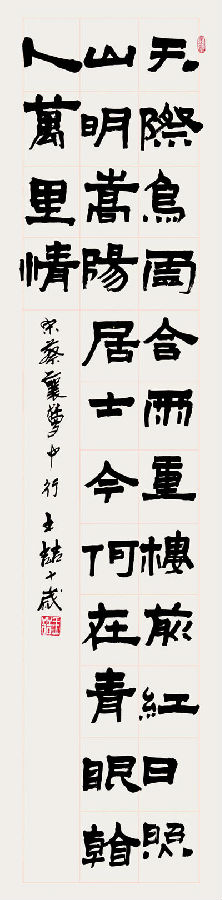 天際烏雲含雨重樓前紅日照
山明嵩陽居士今何在青眼看
人萬里情
宋蔡襄夢中行 王 十歲